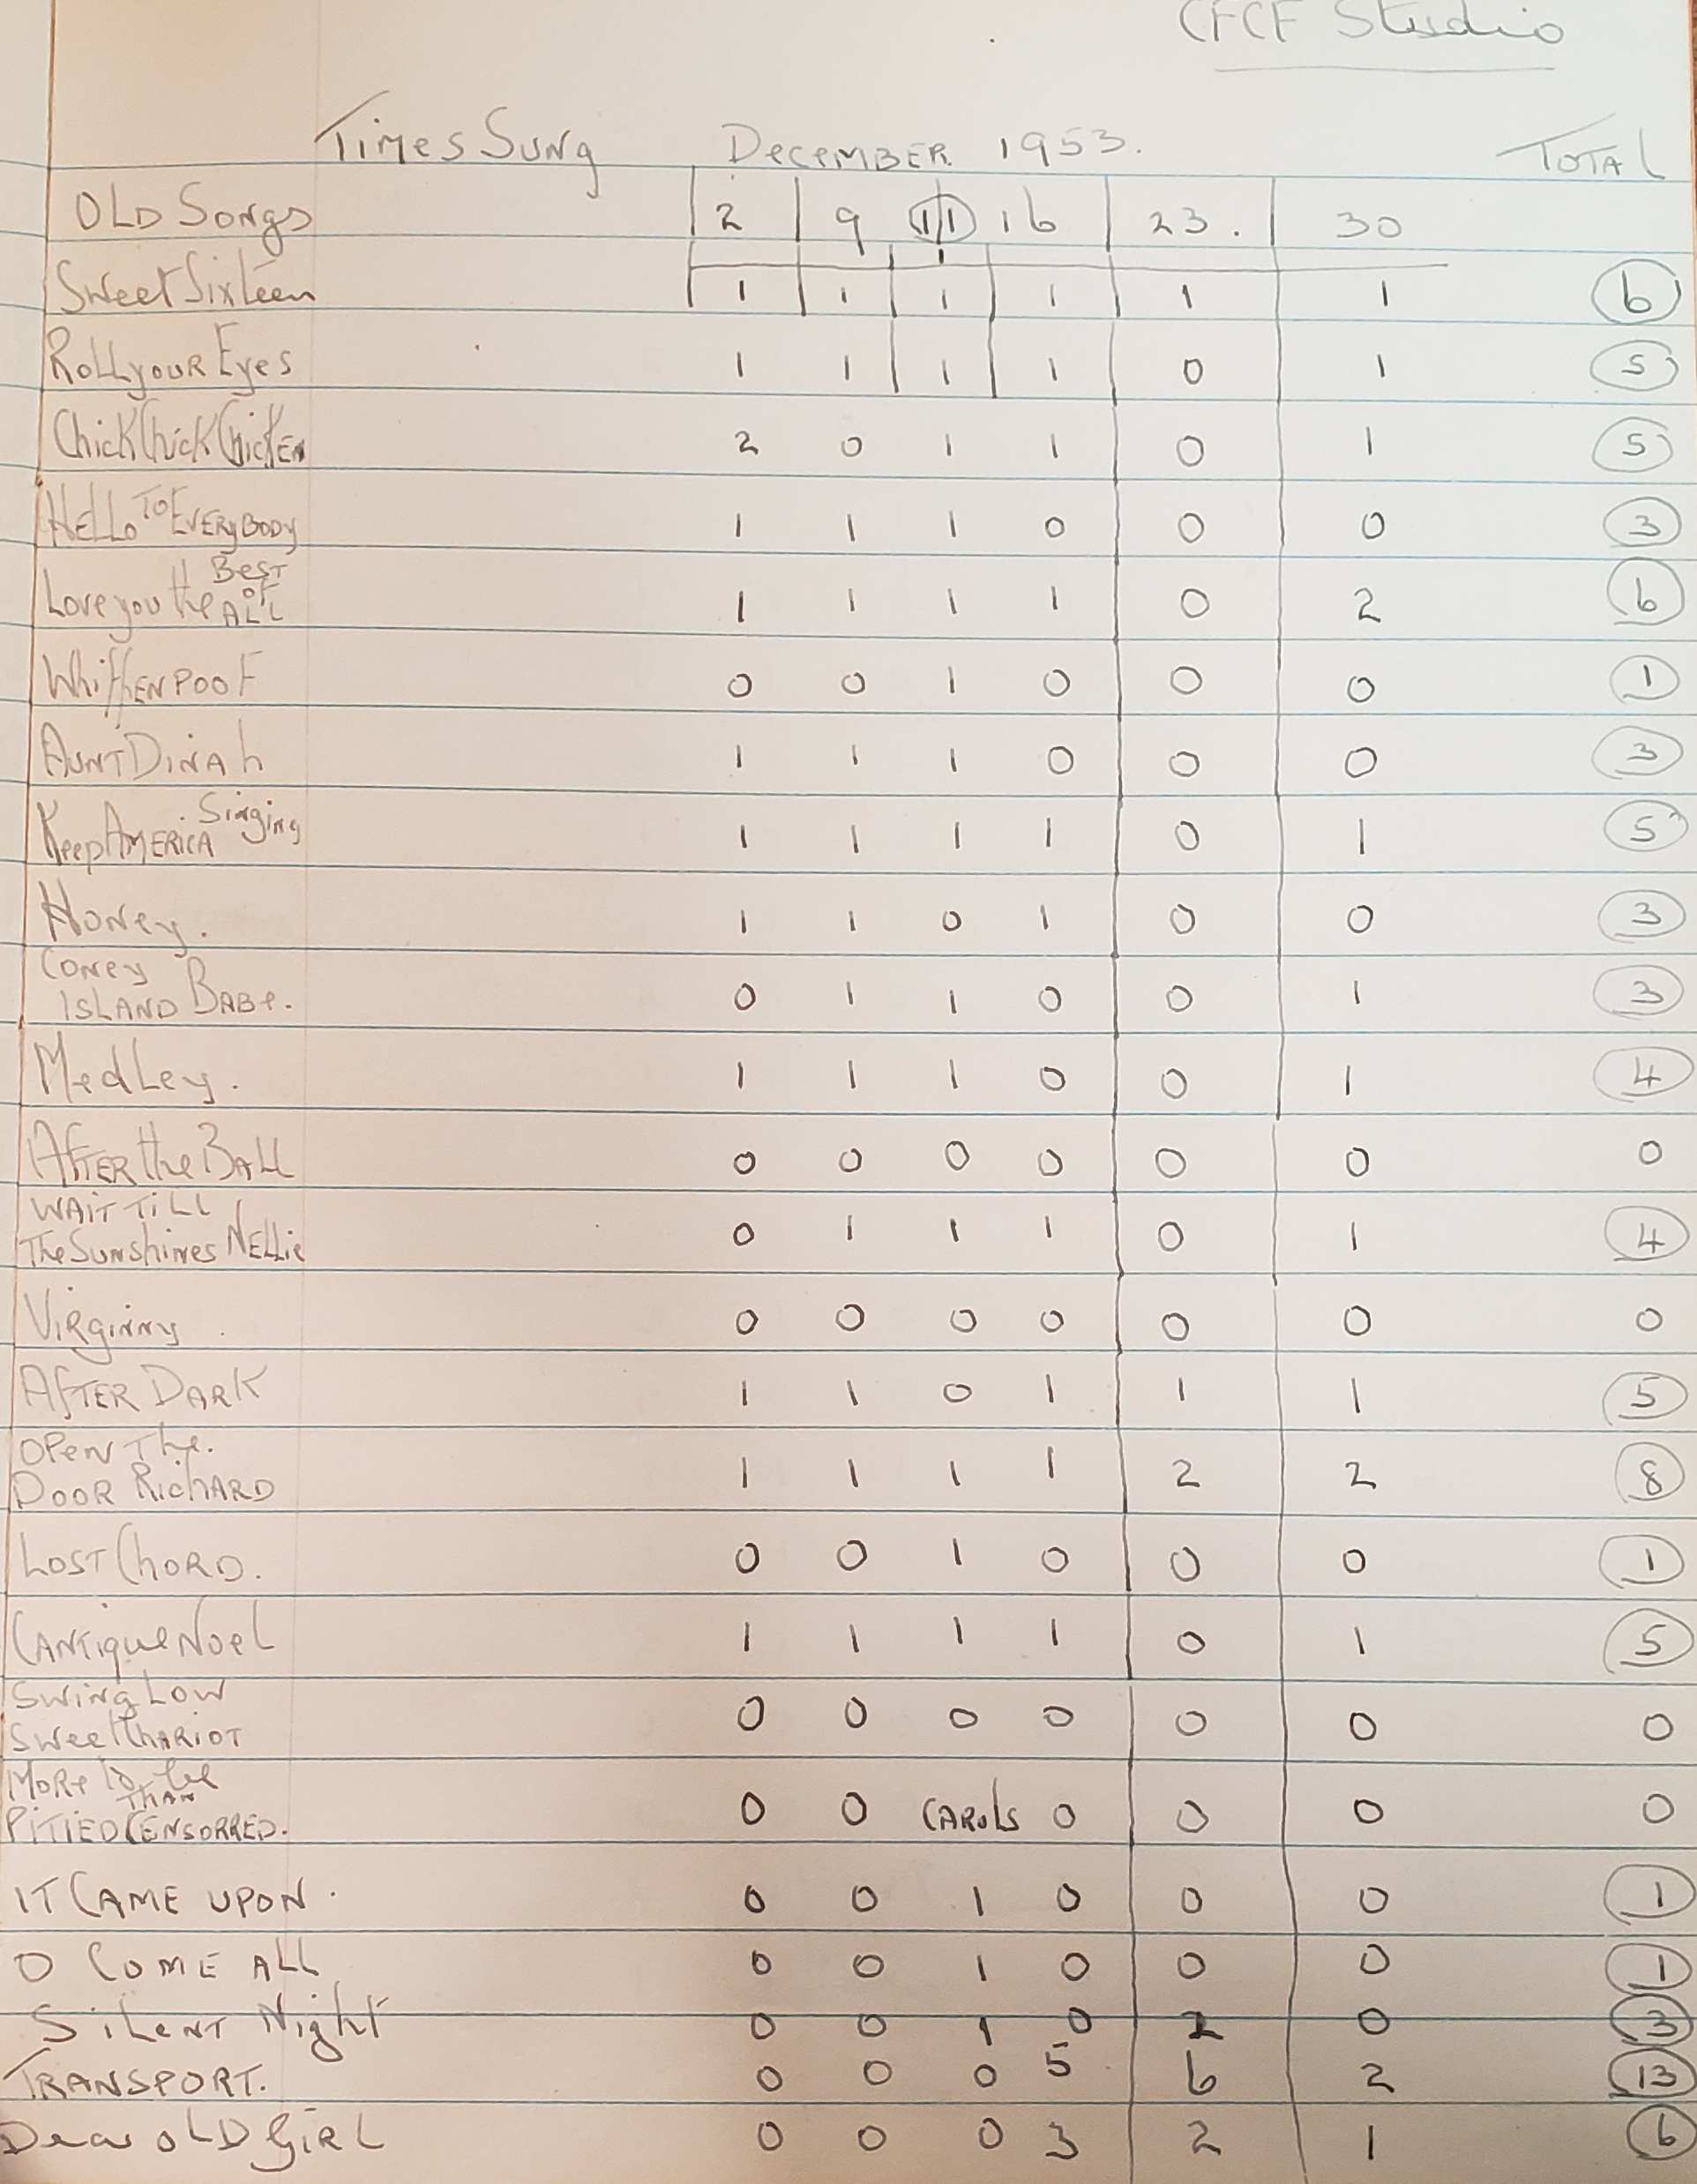 CFCF Studio
Times Sung December 1953. TOTAL
OLD Songs 2 9 11 16 23. 30
Sweet Sixteen 1 1 1 1 1 1 6
Roll your Eyes 1 1 1 1 0 1 5
Chick Chick Chicken 2 0 1 1 0 1 5
Hello To Everybody 1 1 1 0 0 0 3
Love you the Best of All 1 1 1 1 0 2 6
Whiffenpoof 0 0 1 0 0 0 1
Aunt Dinah 1 1 1 0 0 0 3
Keep America Singing 1 1 1 1 0 1 5
Honey. 1 1 0 1 0 0 3
Coney
Island Babe. 0 1 1 0 0 1 3
Medley. 1 1 1 0 0 1 4
After the Ball 0 0 0 0 0 0 0
Wait Till
The Sunshines Nellie 0 1 1 1 0 1 4
Virginny 0 0 0 0 0 0 0
After Dark 1 1 0 1 1 1 5
Open The.
Door Richard 1 1 1 1 2 2 8
Lost Chord. 0 0 1 0 0 0 1
Cantique Noel 1 1 1 1 0 1 5
Swing Low
Sweet Chariot 0 0 0 0 0 0 0
More to be
Than
Pitied Censorred. 0 0 Carols 0 0 0 0
IT CAME UPON. 0 0 1 0 0 0 1
O COME ALL 0 0 1 0 0 0 1
Silent Night 0 0 1 0 2 0 3
TRANSPORT. 0 0 0 5 6 2 13
Dear OLD GIRL 0 0 0 3 2 1 6